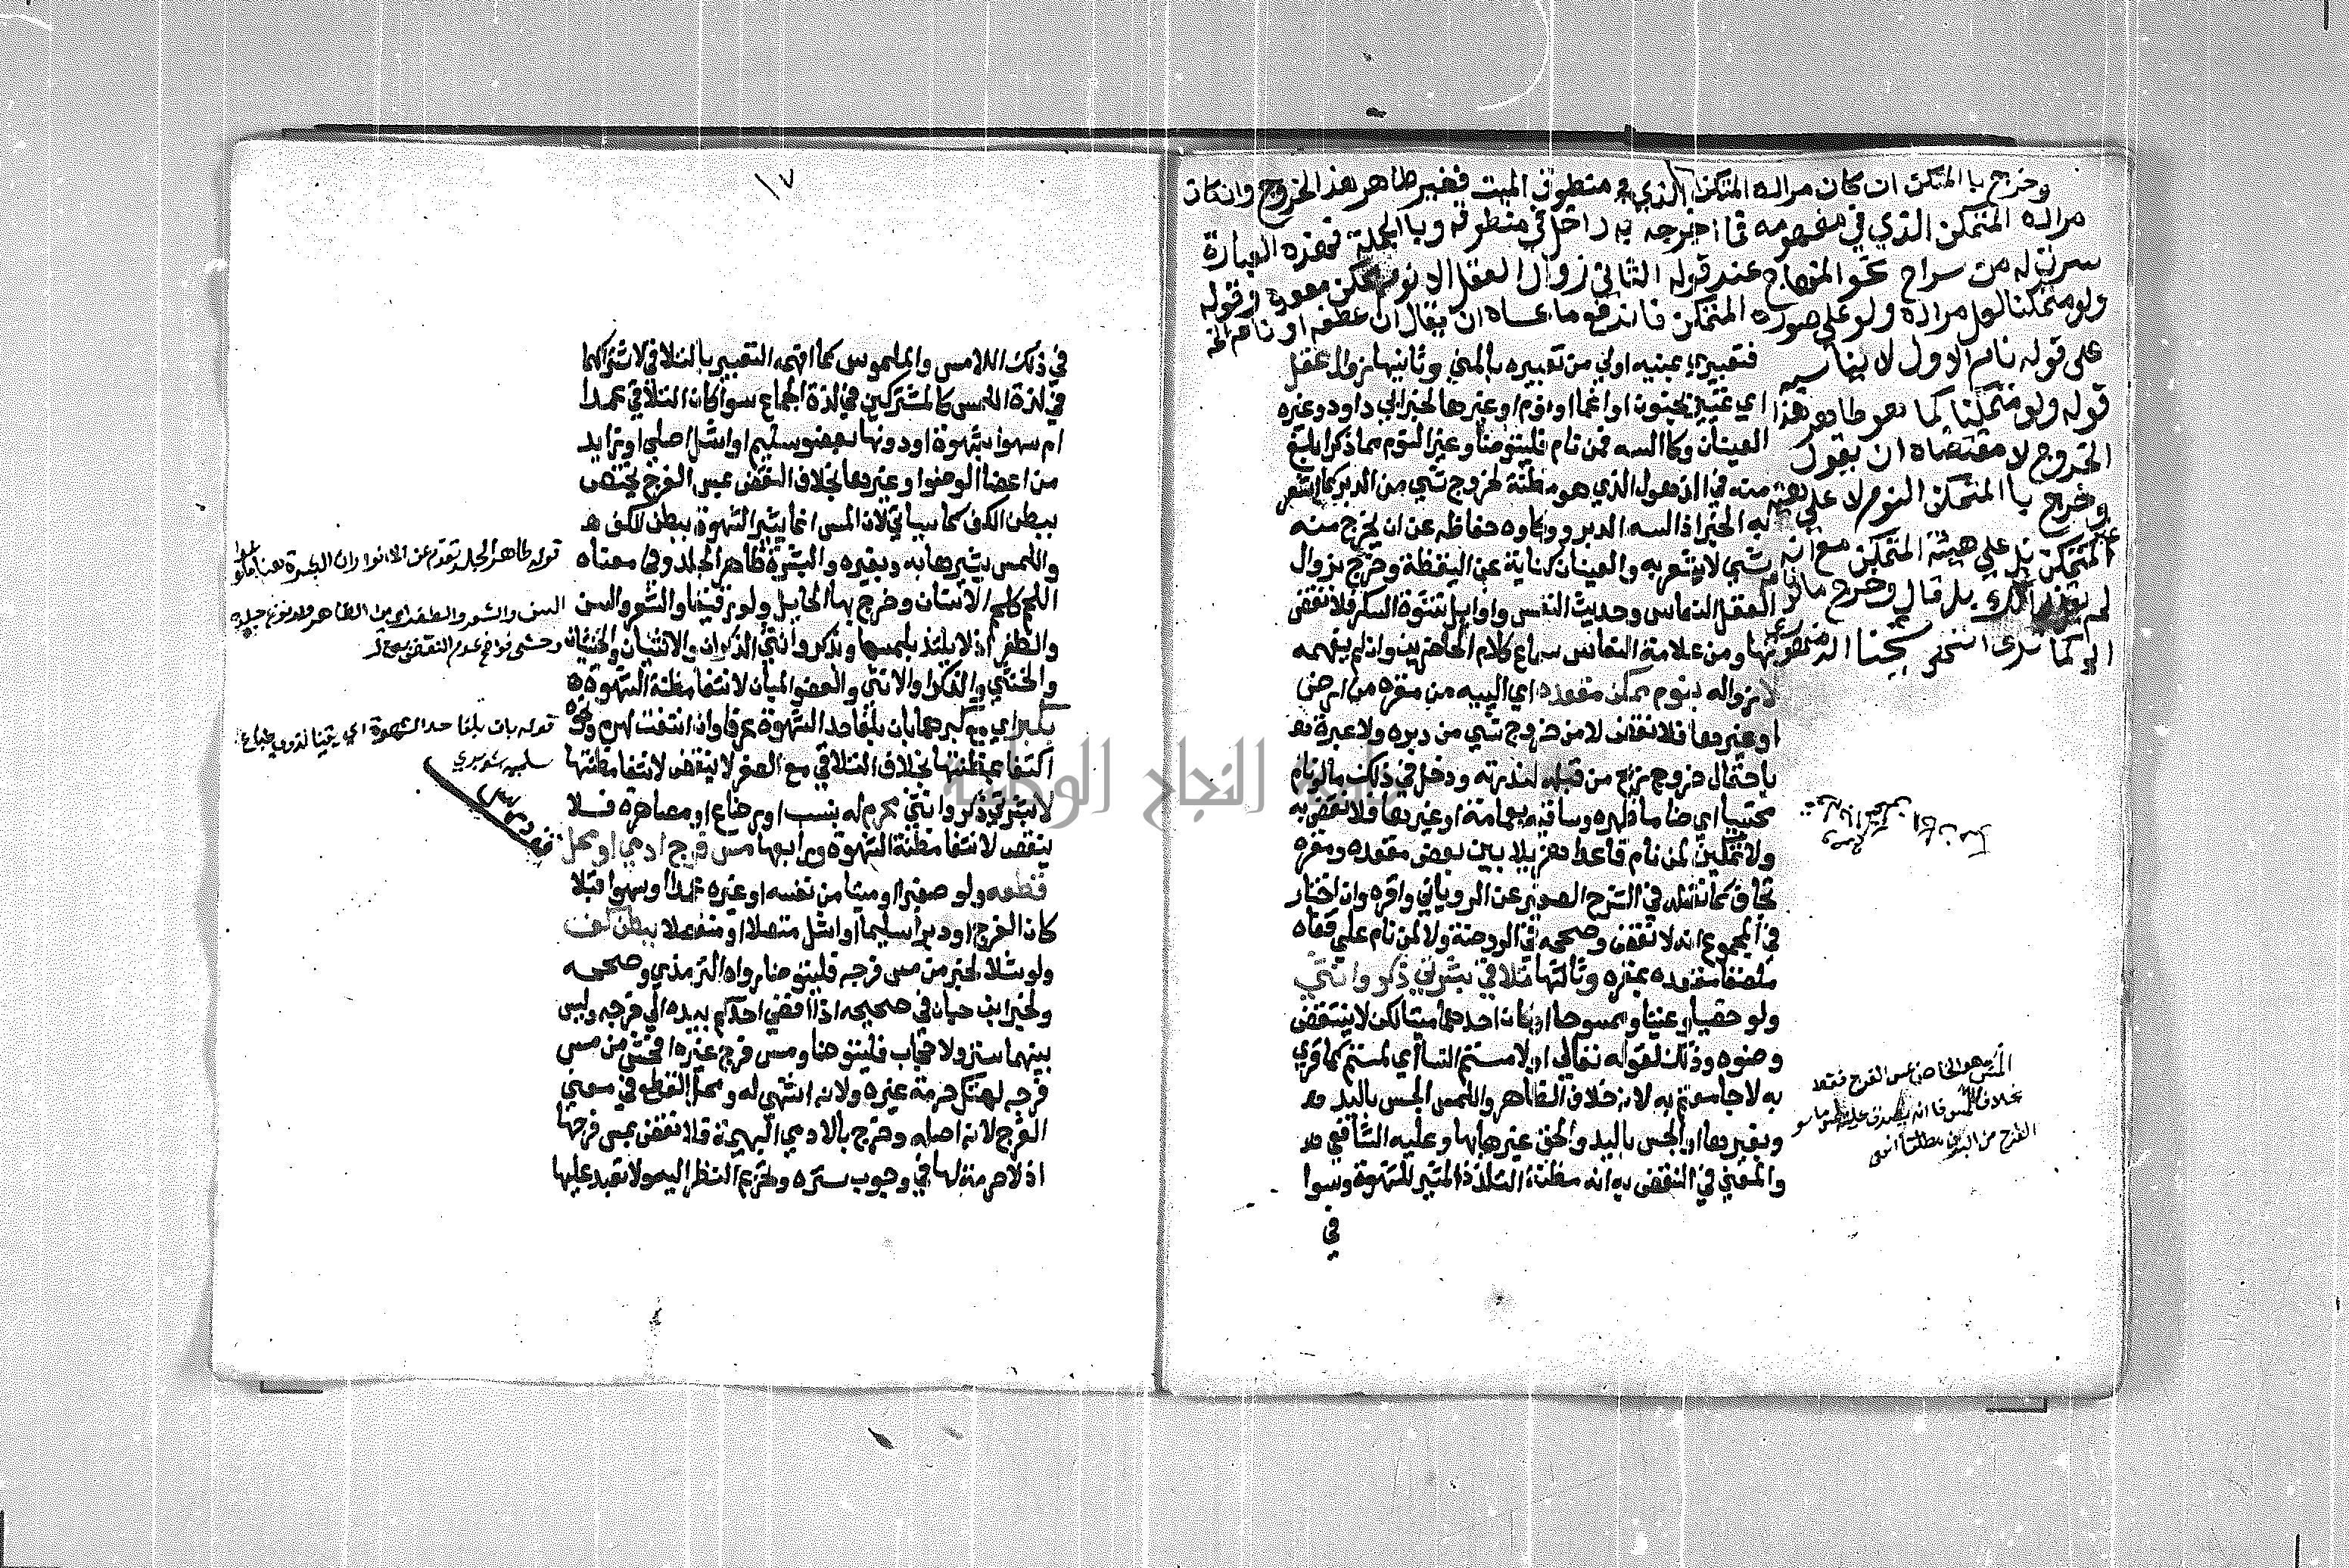 وخرج بالمتمكن ان كان مراده المتمكن الذي في منطوق المیت فغير ظاهر هذا الخروج وان كان
مراده المتمكن الذي في مفهومه فما اخرجه به داخل في منطوقه وبالجملة فهذه العبارة
سرت له من سراح نحو المنهاج عند قوله الثاني زوال العقل الا نوم ممكن مقعده وقوله
ولو متمكنا لعل مراده ولو على صورة المتمكن فاندفع ما عساه ان يقال ان عطفه او نام الخ
على قوله نام الاول لا يناسبه
قوله ولو متمكنا كما هو ظاهر هذا
الخروج لا مقتضاه ان يقول
وخرج بالمتمكن النوم لا على هيئة
المتمكن بل على هيئة المتمكن مع انه
لم يقل ذلك بل قال وخرج ما لو
فتعبيري بمنيه اولي من تعبيره بالمني وثانيها زوال عقل
اي تمييز بجنون او اغما او نوم او غيرها لخبر ابي داود وغيره
العينان وكا السه فمن نام فليتوضا وغير النوم مما ذكر ابلغ
منه في الذهول الذي هو مظنة لخروج شي من الدبر كما اشعر
به الخبر اذ السه الدبر ووكاوه حفاظه عن ان يخرج منه
شي لا يشعر به والعينان كناية عن اليقظة وخرج بزوال
العقل النعاس وحديث النفس واوايل نشوة السكر فلا نقض
بها ومن علامة النعاس سماع كلام الحاضرين وان لم يفهمه
لا زواله بنوم ممكن مقعده اي اليیه من مقره من ارض
او غيرها فلا نقض لامن خروج شي من دبره ولا عبرة
باحتمال خروج ريح من قبله لندرته ودخل في ذلك ما لو نام
محتبيا اي ضاما ظهره وساقيه بعمامة او غيرها فلا نقض به
ولا تمكين لمن نام قاعدا هزيلا بين بعض مقعده ومقره
تجاف كما نقله في الشرح الصغير عن الروياني واقره وان اختار
في المجموع انه لا نقض وصححه في الروضة ولا لمن نام على قفاه
ملصقا مقعده بمقره وثالثها تلاقي بشرتي ذكر وانثي
ولو خصيا وعنينا وممسوحا او كان احدهما ميتا لكن لا ينتقض
وضوه وذلك لقوله تعالي او لامستم النسا اي لمستم كما قري
به لا جامعتم به لانه خلاف الظاهر واللمس الجس باليد
وبغيرها او الجس باليد والحق غيرها بها وعليه الشافعي
والمعني في النقض به انه مظنة التلذذ المثير للشهوة وسوا
في
المس هو الخاص بمس الفرج فقط
بخلاف اللمس فانه يصدق على لمس ما سو
الفرج من البدن مطلقا انتهى
١٧
في ذلك اللامس والملموس كما افهمه التعبير بالتلاقي لاشتراكهما
في لذة اللمس كالمشتركين في لذة الجماع سوا كان التلاقي عمدا
ام سهوا بشهوة او دونها بعضو سليم او اشل اصلي او زايد
من اعضا الوضوا وغيرها بخلاف النقض بمس الفرج يختص
ببطن الكف كما سياتي لان المس انما يثير الشهوة ببطن الكف
واللمس يثيرها به وبغيره والبشرة ظاهر الجلد وفي معناه
اللحم كلحم الاسنان وخرج بها الحايل ولو رقيقا والشعر والسن
والظفر اذ لا يلتذ بلمسها وبذكر وانثي الذكران والانثيان والخنثيان
والخنثي والذكر او الانثي والعضو المبان لانتفا مظنة الشهوة
بكبر اي مع كبرهما بان بلغا حد الشهوة عرفا وان انتفت لهرم ونحوه
اكتفا بمظنتها بخلاف التلاقي مع الصغر لا ينقض لانتفا مظنتها
لا بشرتي ذكر وانثي محرم له بنسب او رضاع او مصاهرة فلا
ينقض لانتفا مظنة الشهوة ورابعها مس فرج ادمي او محل
قطعه ولو صغيرا او ميتا من نفسه او غيره عمدا وسهوا قبلا
كان الفرج او دبرا سليما او اشل متصلا او منفصلا ببطن كف
ولو شلا لخبر من مس فرجه فليتوضا رواه الترمذي وصححه
ولخبر ابن حبان في صحيحه اذا افضي احدكم بيده الي فرجه وليس
بينهما ستر ولا حجاب فليتوضا ومس فرج غيره افحش من مس
فرجه لهتك حرمة غيره ولانه اشهي له ومحل القطع في معني
الفرج لانه اصله وخرج بالادمي البهيمة فلا نقض بمس فرجها
اذ لا حرمة لها في وجوب ستره وتحريم النظر اليه ولا تعبد عليها
قوله ظاهر الجلد تقدم عن الانوار ان البشرة هنا
السن والشعر والظفر
قوله بان بلغا حد الشهوة اي يقينا لذوي طباع
سليمه شوبري
جامعة النجاح الوطنية